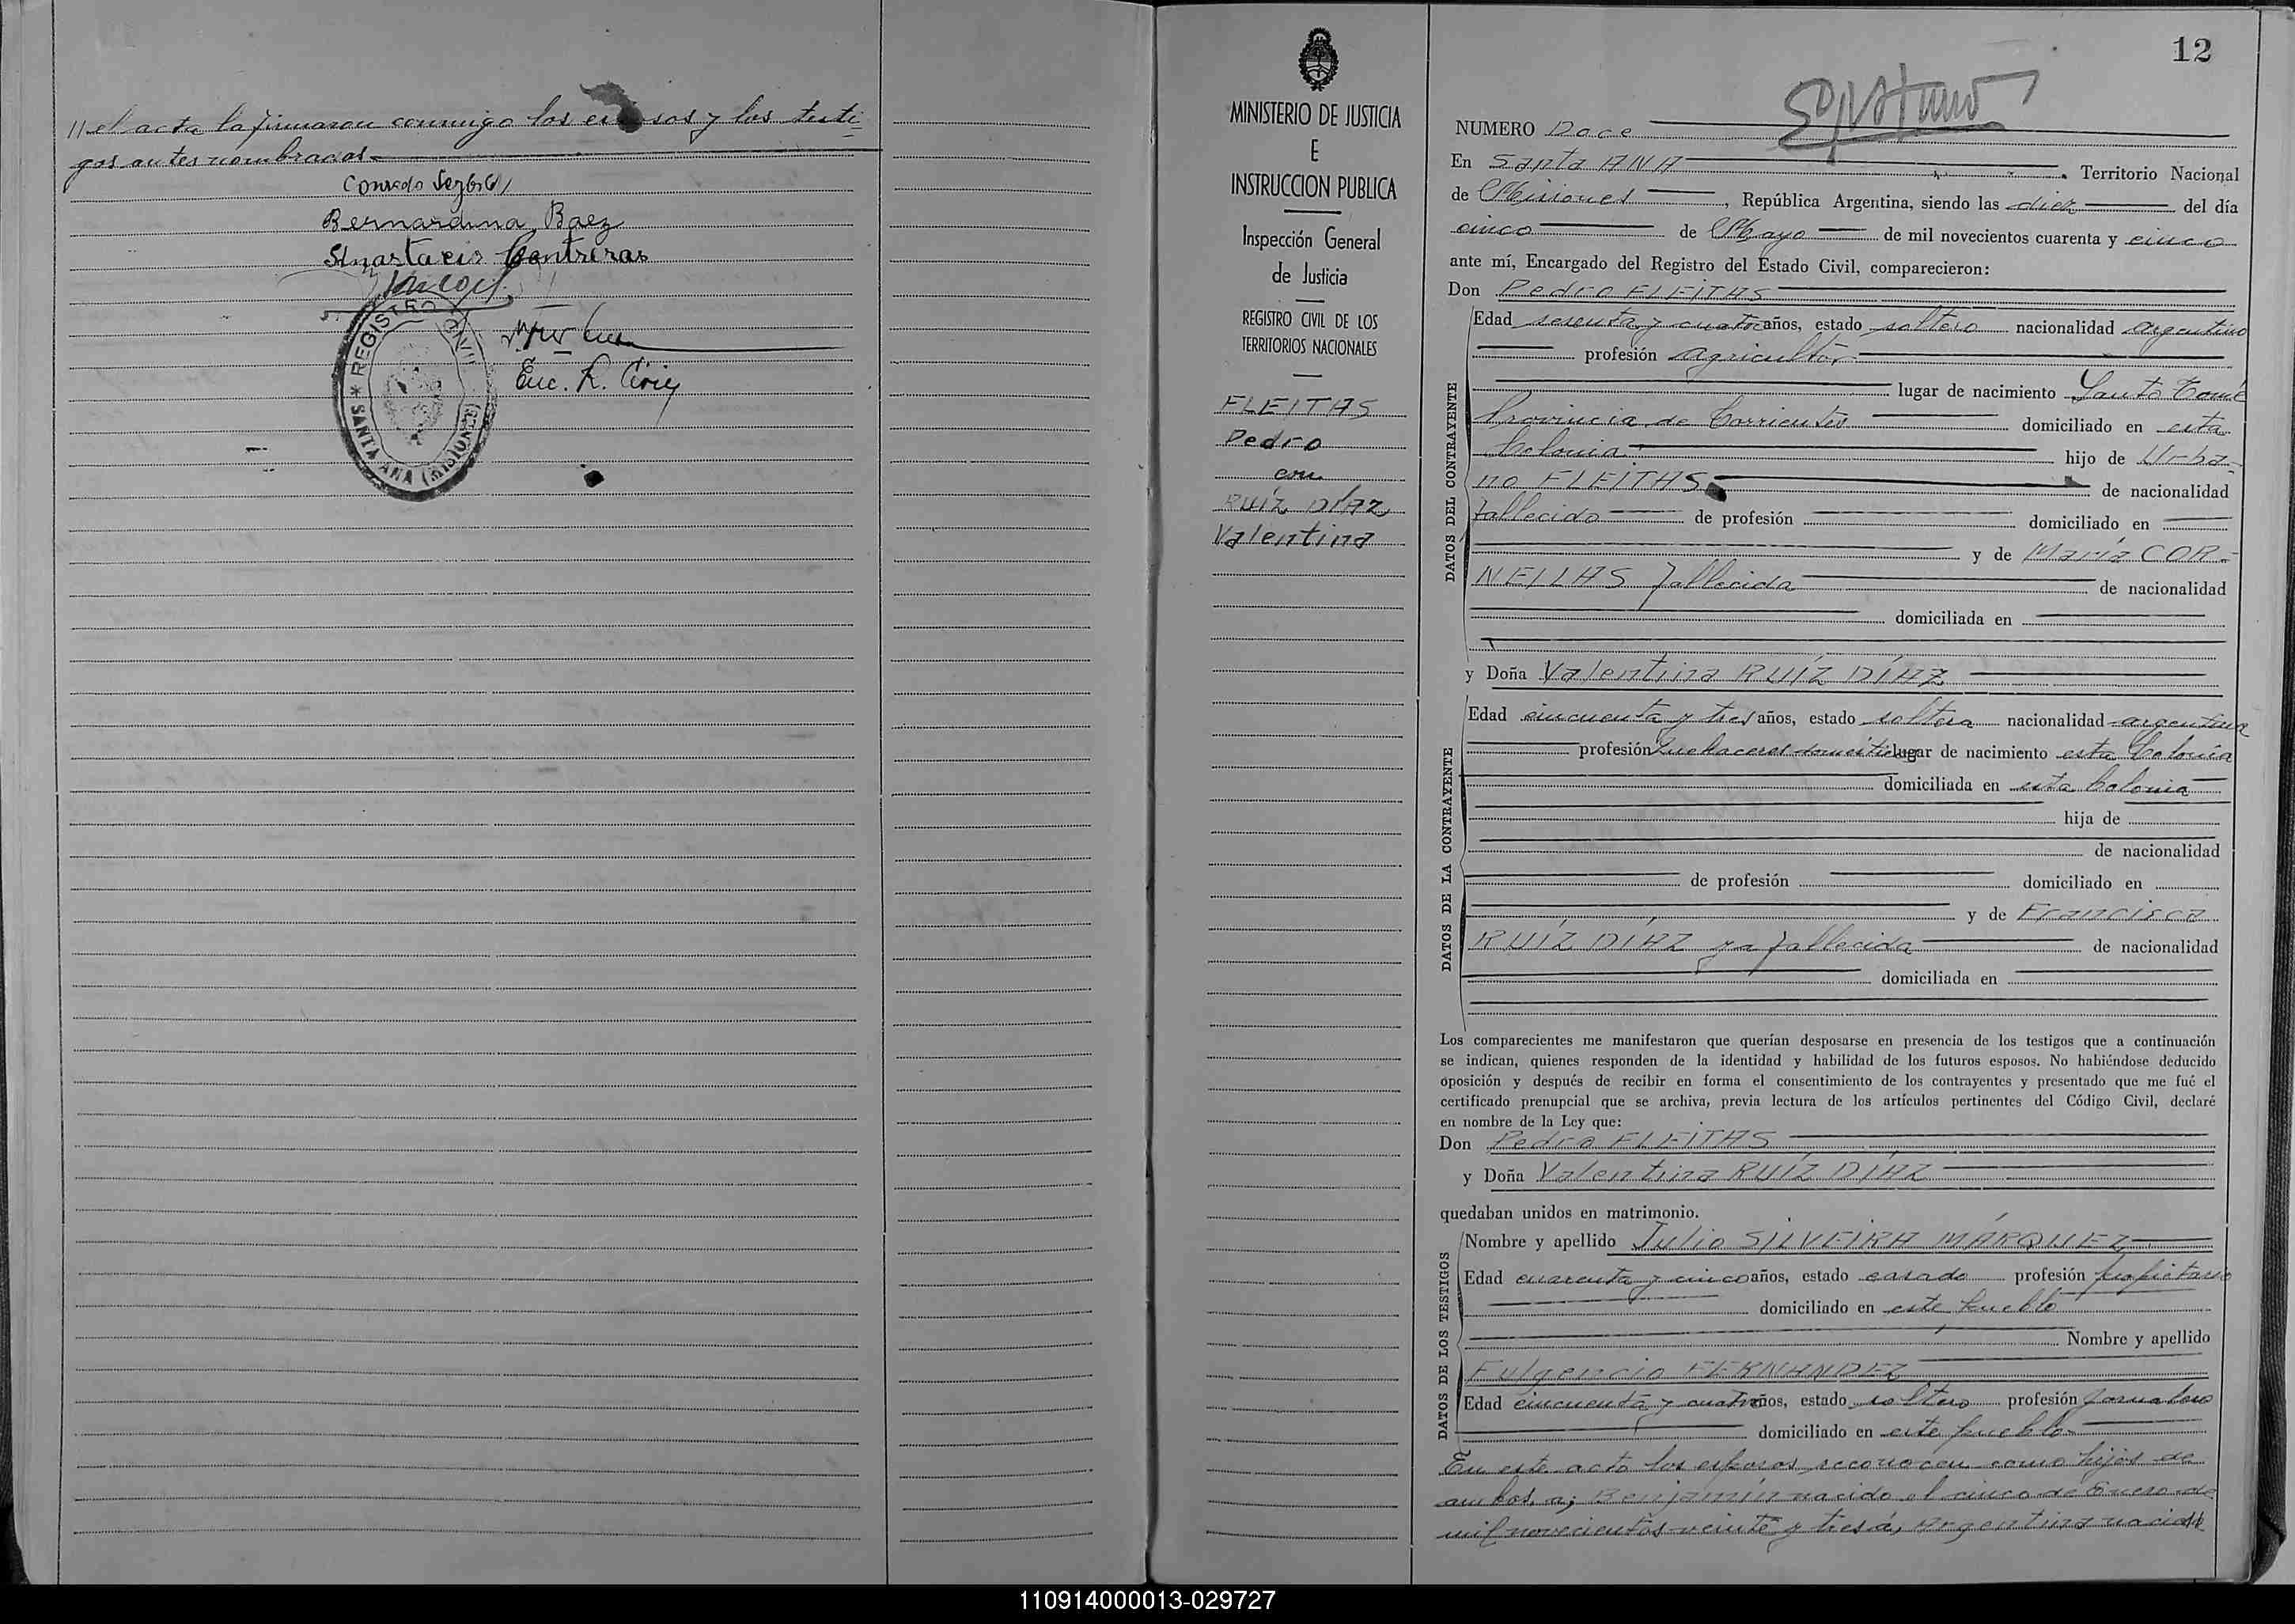 //el acta la firmaron conmigo los esposos y los testi-
gos antes nombrados.
Bernardina Baez
Anastacio Contreras
Enc. R. Civil
* REGISTRO CIVIL * SANTA ANA (MISIONES)
MINISTERIO DE JUSTICIA
E
INSTRUCCION PUBLICA
Inspección General
de Justicia
REGISTRO CIVIL DE LOS
TERRITORIOS NACIONALES
FLEITAS
Pedro
con
RUÍZ DÍAZ
Valentina
12
NUMERO Doce
En Santa ANA . Territorio Nacional
de Misiones , República Argentina, siendo las diez del día
cinco de Mayo de mil novecientos cuarenta y cinco
ante mí, Encargado del Registro del Estado Civil, comparecieron:
Don Pedro FLEITAS
DATOS DEL CONTRAYENTE
Edad sesenta y cuatro años, estado soltero nacionalidad argentino
profesión agricultor
lugar de nacimiento Santo Tomé
Provincia de Corrientes domiciliado en esta
Colonia hijo de Urba-
no FLEITAS de nacionalidad
fallecido de profesión domiciliado en
y de María COR-
NELLAS fallecida de nacionalidad
domiciliada en
y Doña Valentina RUÍZ DÍAZ
DATOS DE LA CONTRAYENTE
Edad cincuenta y tres años, estado soltera nacionalidad argentina
profesión quehaceres domésticos lugar de nacimiento esta Colonia
domiciliada en esta Colonia
hija de
de nacionalidad
de profesión domiciliado en
y de Francisca
RUÍZ DÍAZ ya fallecida de nacionalidad
domiciliada en
Los comparecientes me manifestaron que querían desposarse en presencia de los testigos que a continuación
se indican, quienes responden de la identidad y habilidad de los futuros esposos. No habiéndose deducido
oposición y después de recibir en forma el consentimiento de los contrayentes y presentado que me fué el
certificado prenupcial que se archiva, previa lectura de los artículos pertinentes del Código Civil, declaré
en nombre de la Ley que:
Don Pedro FLEITAS
y Doña Valentina RUÍZ DÍAZ
quedaban unidos en matrimonio.
DATOS DE LOS TESTIGOS
Nombre y apellido Julio SILVEIRA MÁRQUEZ
Edad cuarenta y cinco años, estado casado profesión propietario
domiciliado en este pueblo
Nombre y apellido
Fulgencio FERNANDEZ
Edad cincuenta y cuatro años, estado soltero profesión jornalero
domiciliado en este pueblo
En este acto los esposos reconocen como hijos de
ambos, a; Benjamín nacido el cinco de Enero de
mil novecientos veinte y tres á, Argentina nacida
110914000013-029727